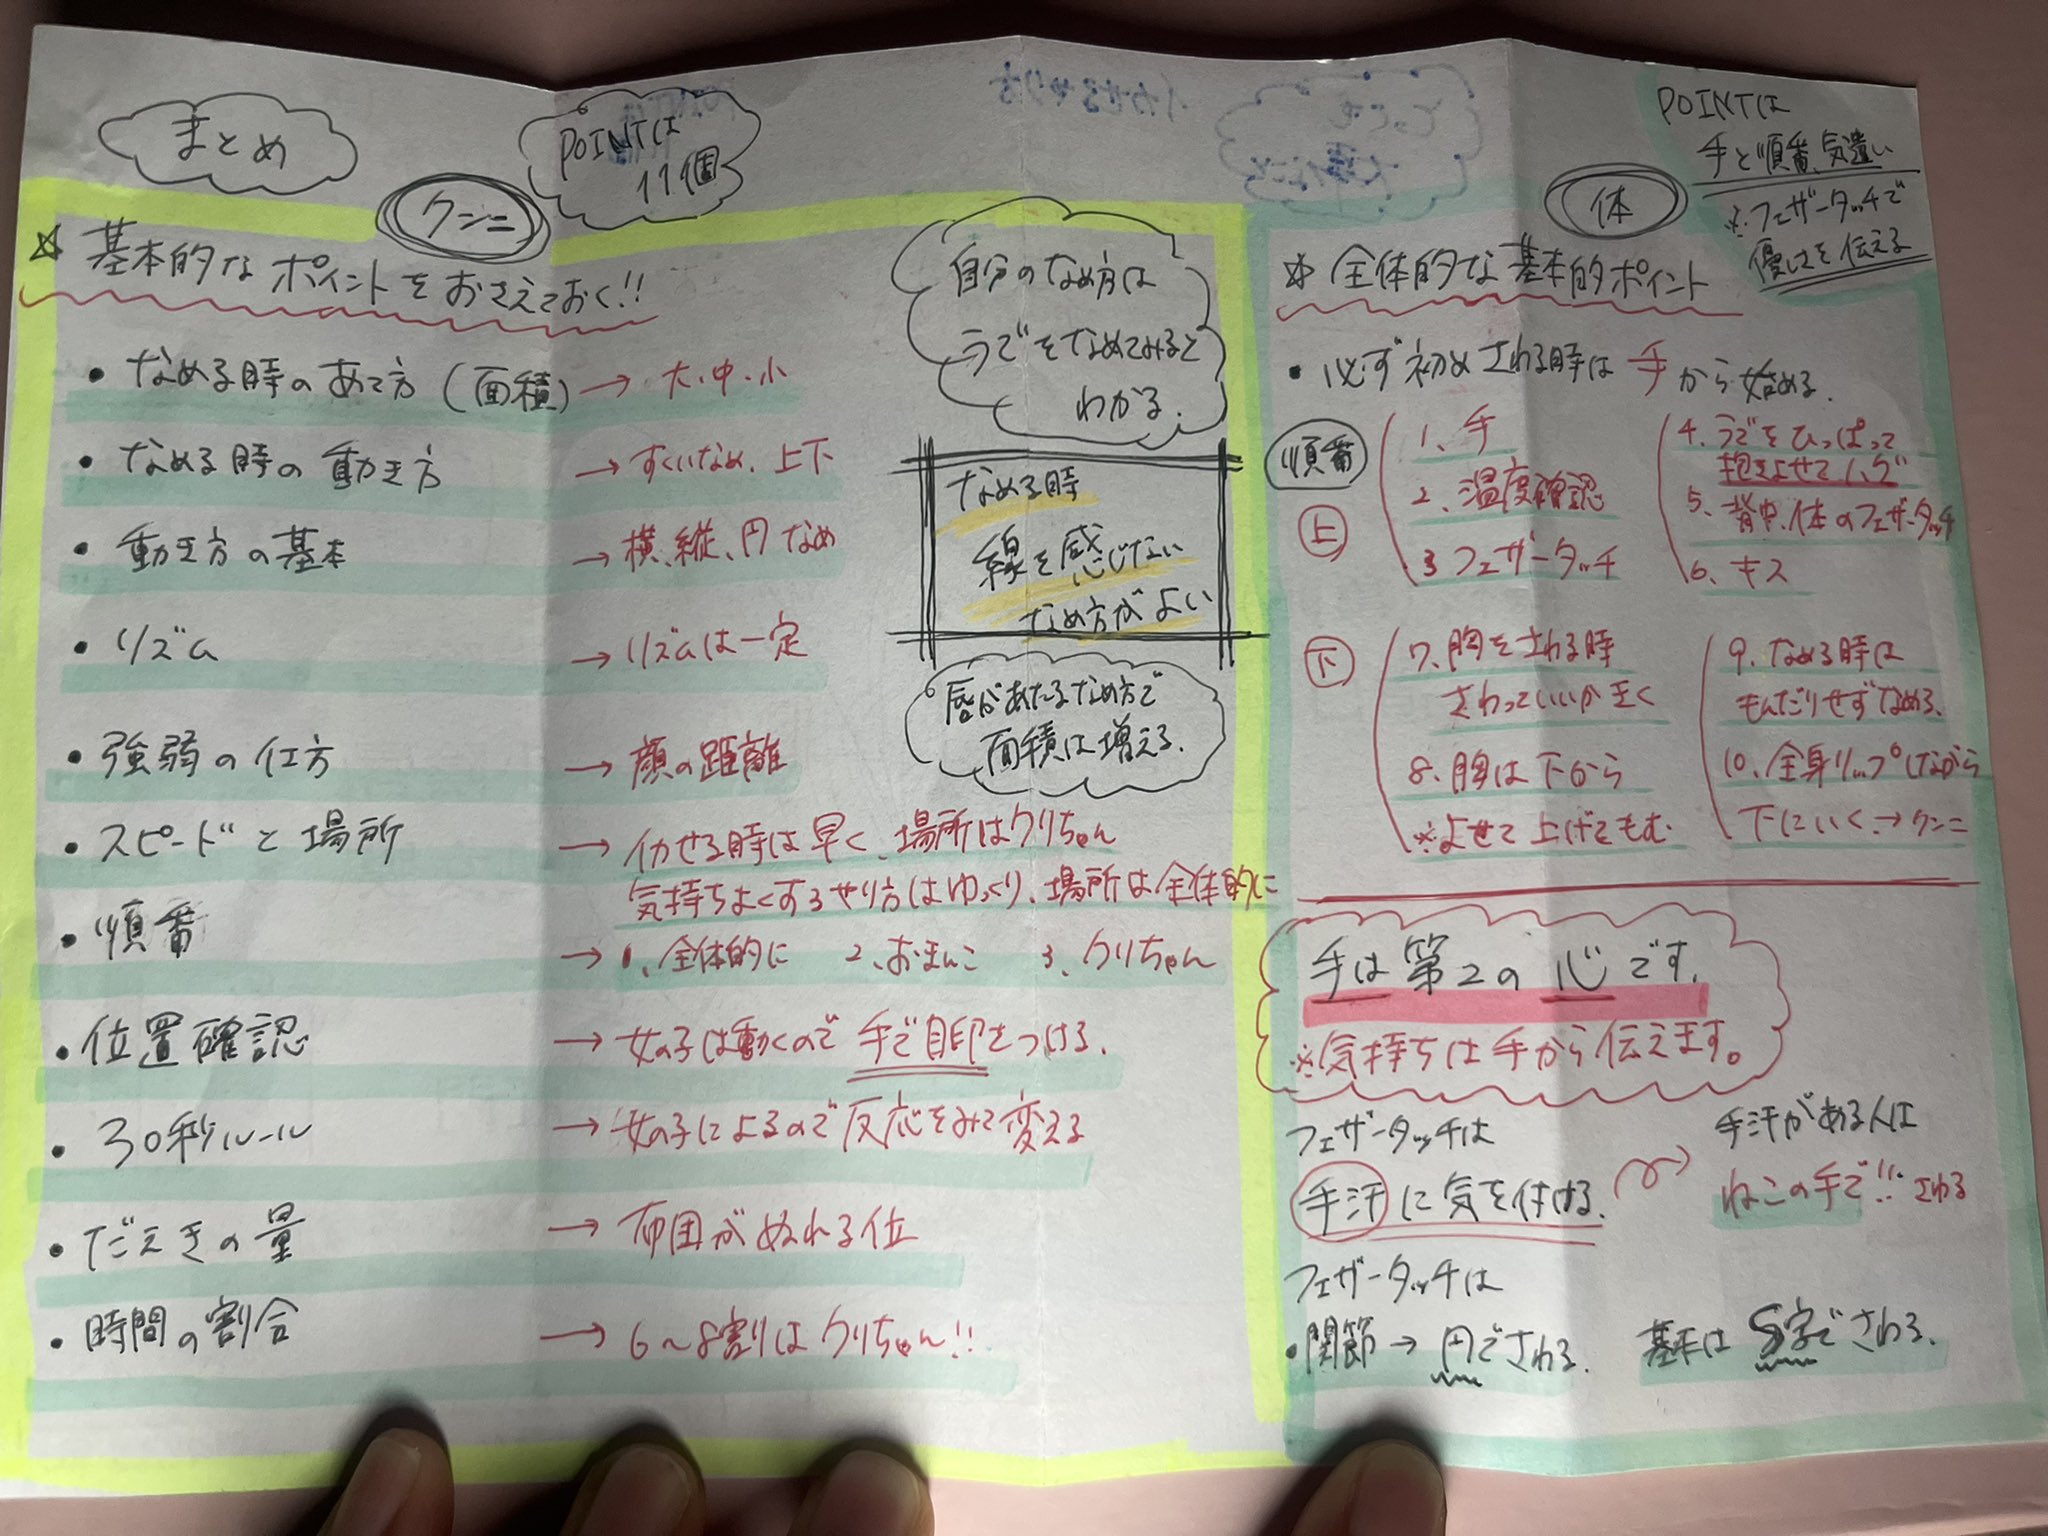 まとめ
クンニ
POINTは
11個
☆ 基本的なポイントをおさえておく!!
・なめる時のあて方(面積) → 大・中・小
・なめる時の動き方 → すくいなめ、上下
・動き方の基本 → 横、縦、円なめ
・リズム → リズムは一定
・強弱の仕方 → 顔の距離
・スピードと場所 → イカせる時は早く、場所はクリちゃん
気持ちよくするやり方はゆっくり、場所は全体的に
・順番 → 1、全体的に 2、おまんこ 3、クリちゃん
・位置確認 → 女の子は動くので手で目印をつける、
・30秒ルール → 女の子によるので反応をみて変える
・だえきの量 → 布団がぬれる位
・時間の割合 → 6〜8割りはクリちゃん!!
自分のなめ方は
うでをなめてみると
わかる、
なめる時
線を感じない
なめ方がよい
唇があたるなめ方で
面積は増える、
体
POINTは
手と順番、気遣い
※フェザータッチで
優しさを伝える
☆ 全体的な基本的ポイント
・必ず初めさわる時は手から始める、
順番
上
1、手
2、温度確認
3 フェザータッチ
4、うでをひっぱって
抱きよせてハグ
5、背中、体のフェザータッチ
6、キス
下
7、胸をさわる時
さわっていいかきく
8、胸は下から
※よせて上げてもむ
9、なめる時は
もんだりせずなめる、
10、全身リップしながら
下にいく、→クンニ
手は第2の心です、
※気持ちは手から伝えます。
フェザータッチは
手汗に気を付ける、
手汗がある人は
ねこの手で!!さわる
フェザータッチは
・関節→円でさわる、 基本はS字でさわる、